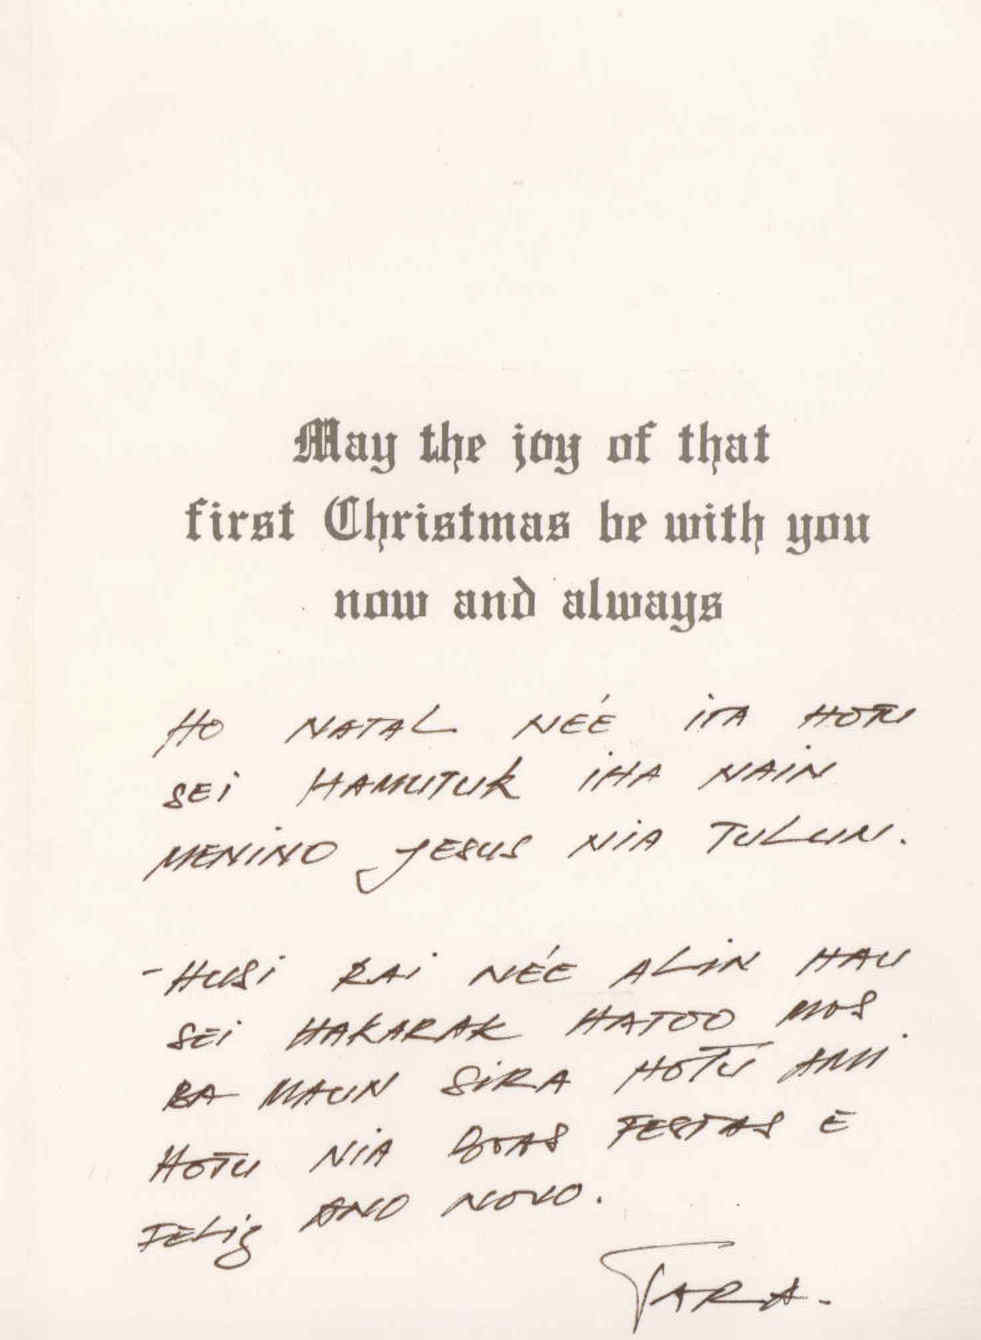 May the joy of that
first Christmas be with you
now and always
HO NATAL NÉE ITA HOTU
SEI HAMUTUK IHA NAIN
MENINO JESUS NIA TULUN.
- HUSI RAI NÉE ALIN HAU
SEI HAKARAK HATOO MOS
BA MAUN SIRA HOTU AMI
HOTU NIA BOAS FESTAS E
FELIZ ANO NOVO.
TARA.